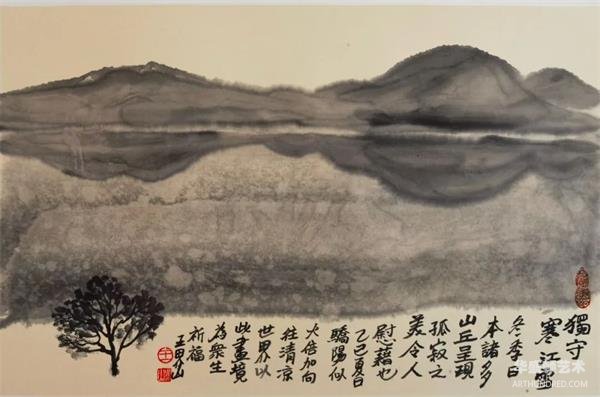 獨守
寒江靈
冬季日
本諸多
山丘呈現
孤寂之
美令人
慰藉也
乙巳夏日
驕陽似
火倍加向
往清凉
世界以
此畫境
為衆生
祈福
王界山
华盛顿艺术
ARTHUNDRED.COM